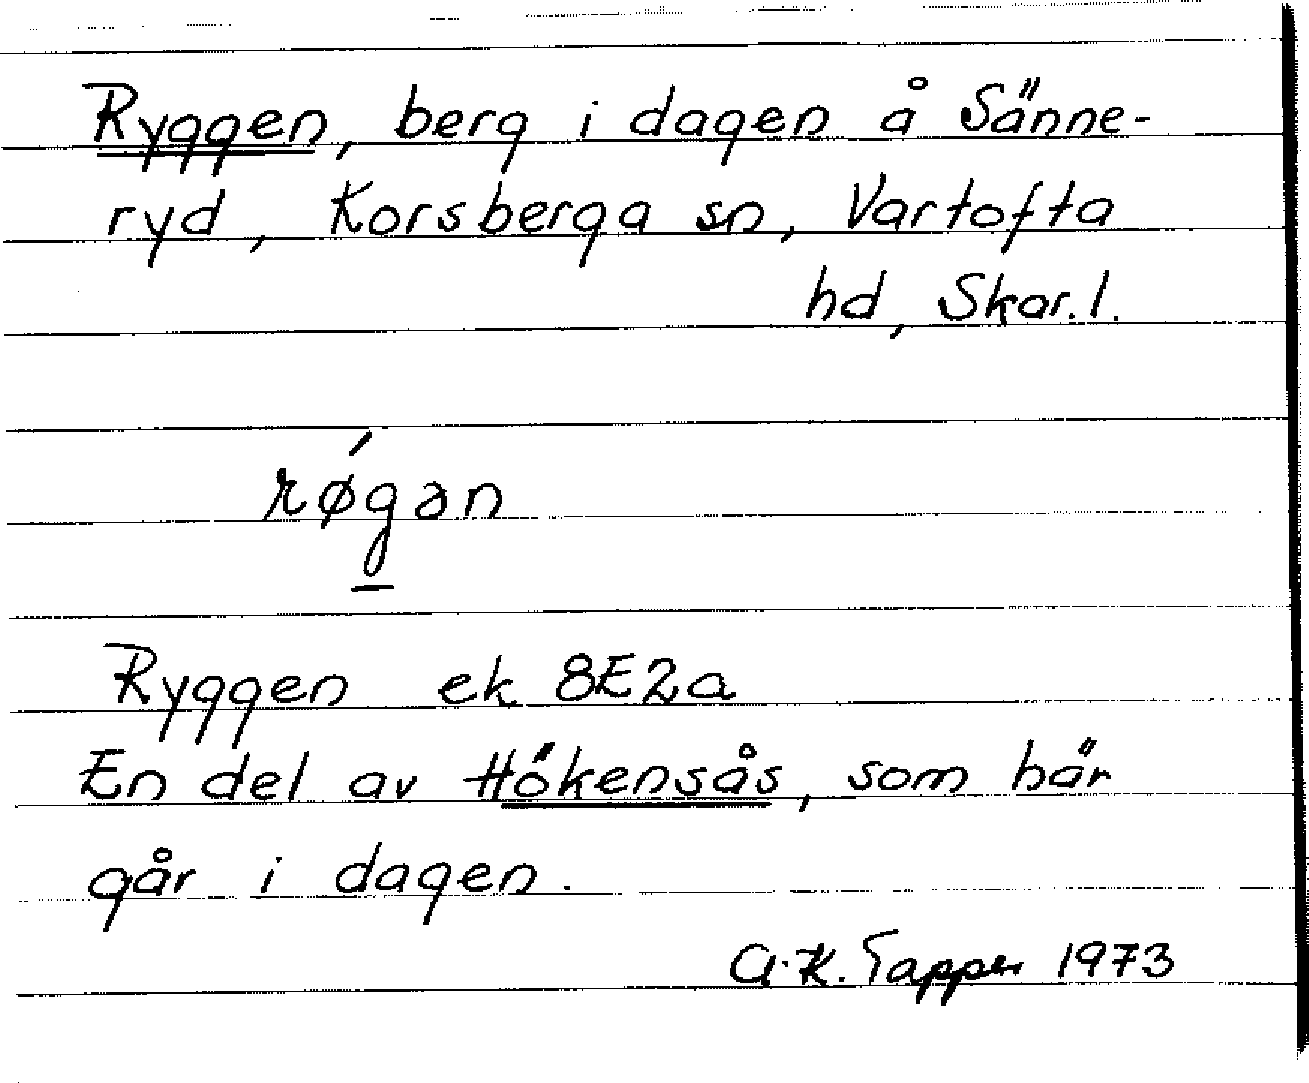 Ryggen, berg i dagen å Sänne-
ryd, Korsberga sn, Vartofta
hd, Skar.l.
røǵ̠ən
Ryggen ek 8E2a
En del av Hökensås, som här
går i dagen.
A.K. Tapper 1973